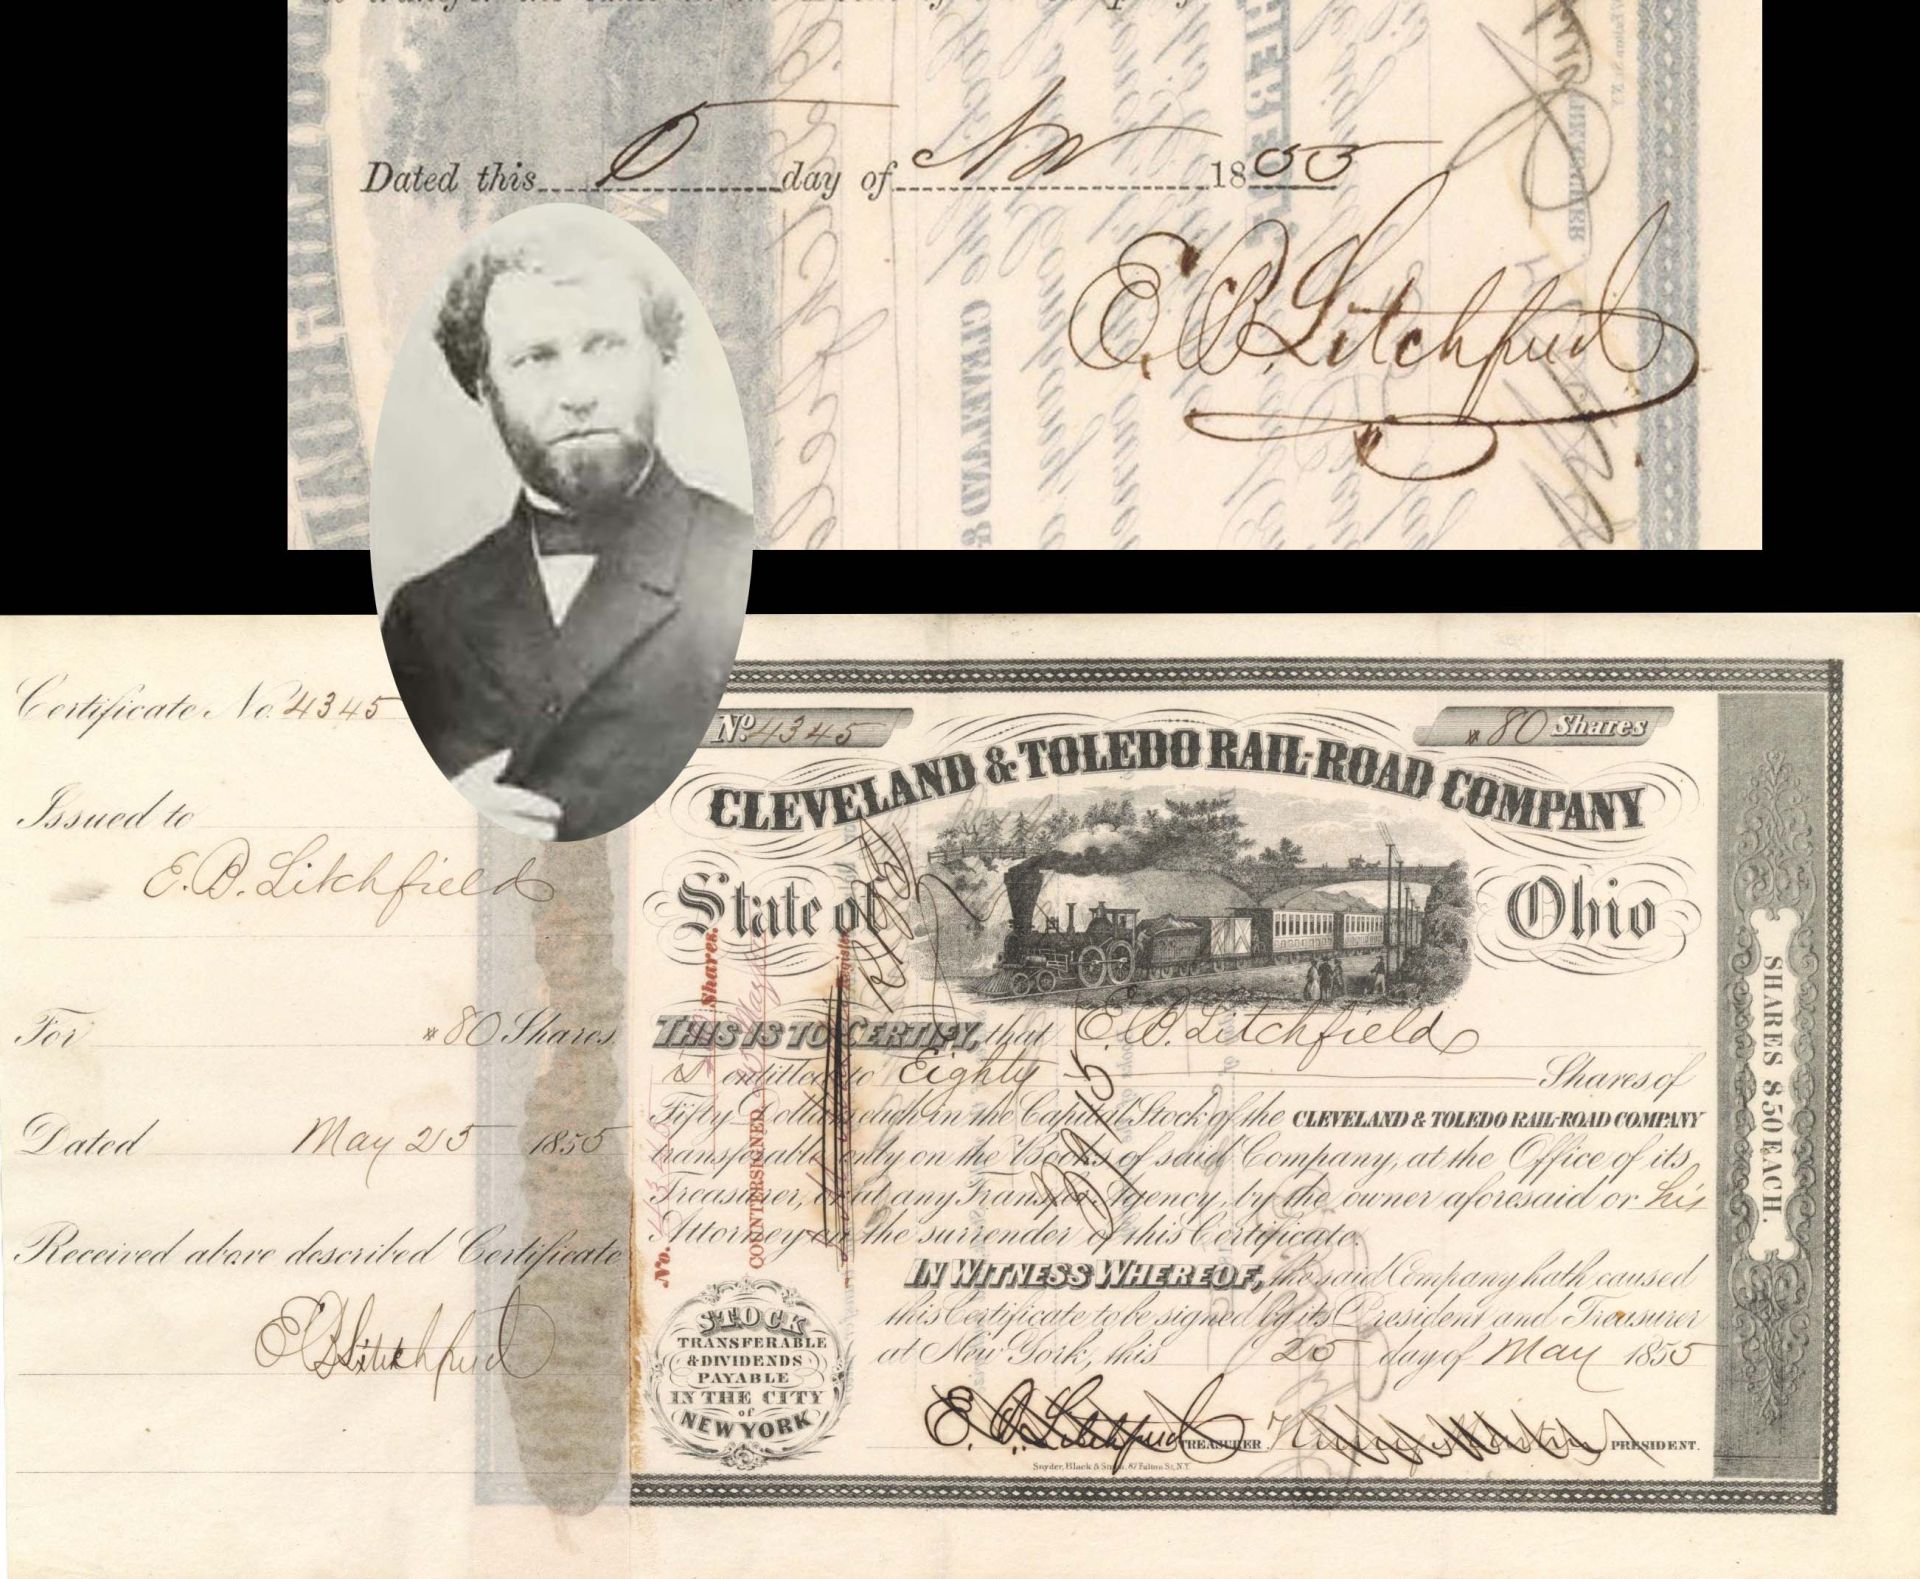 Dated this 5 day of Nov 1855
E. B. Litchfield
Certificate No. 4345
Issued to
E. B. Litchfield
For *80 Shares
Dated May 25 1855
Received above described Certificate
E B Litchfield
No. 4345
*80 Shares
CLEVELAND & TOLEDO RAIL-ROAD COMPANY
State of Ohio
THIS IS TO CERTIFY, that E. B. Litchfield
is entitled to Eighty Shares of
Fifty Dollars each in the Capital Stock of the CLEVELAND & TOLEDO RAIL-ROAD COMPANY
transferable only on the Books of said Company, at the Office of its
Treasurer, or at any Transfer Agency, by the owner aforesaid or his
Attorney on the surrender of this Certificate.
IN WITNESS WHEREOF, the said Company hath caused
this Certificate to be signed by its President and Treasurer
at New York, this 25 day of May 1855
E. B. Litchfield TREASURER PRESIDENT.
Snyder, Black & Sturn, 87 Fulton St, N.Y.
STOCK
TRANSFERABLE
& DIVIDENDS
PAYABLE
IN THE CITY
of
NEW YORK
No. Shares.
COUNTERSIGNED
Register
SHARES $50 EACH.